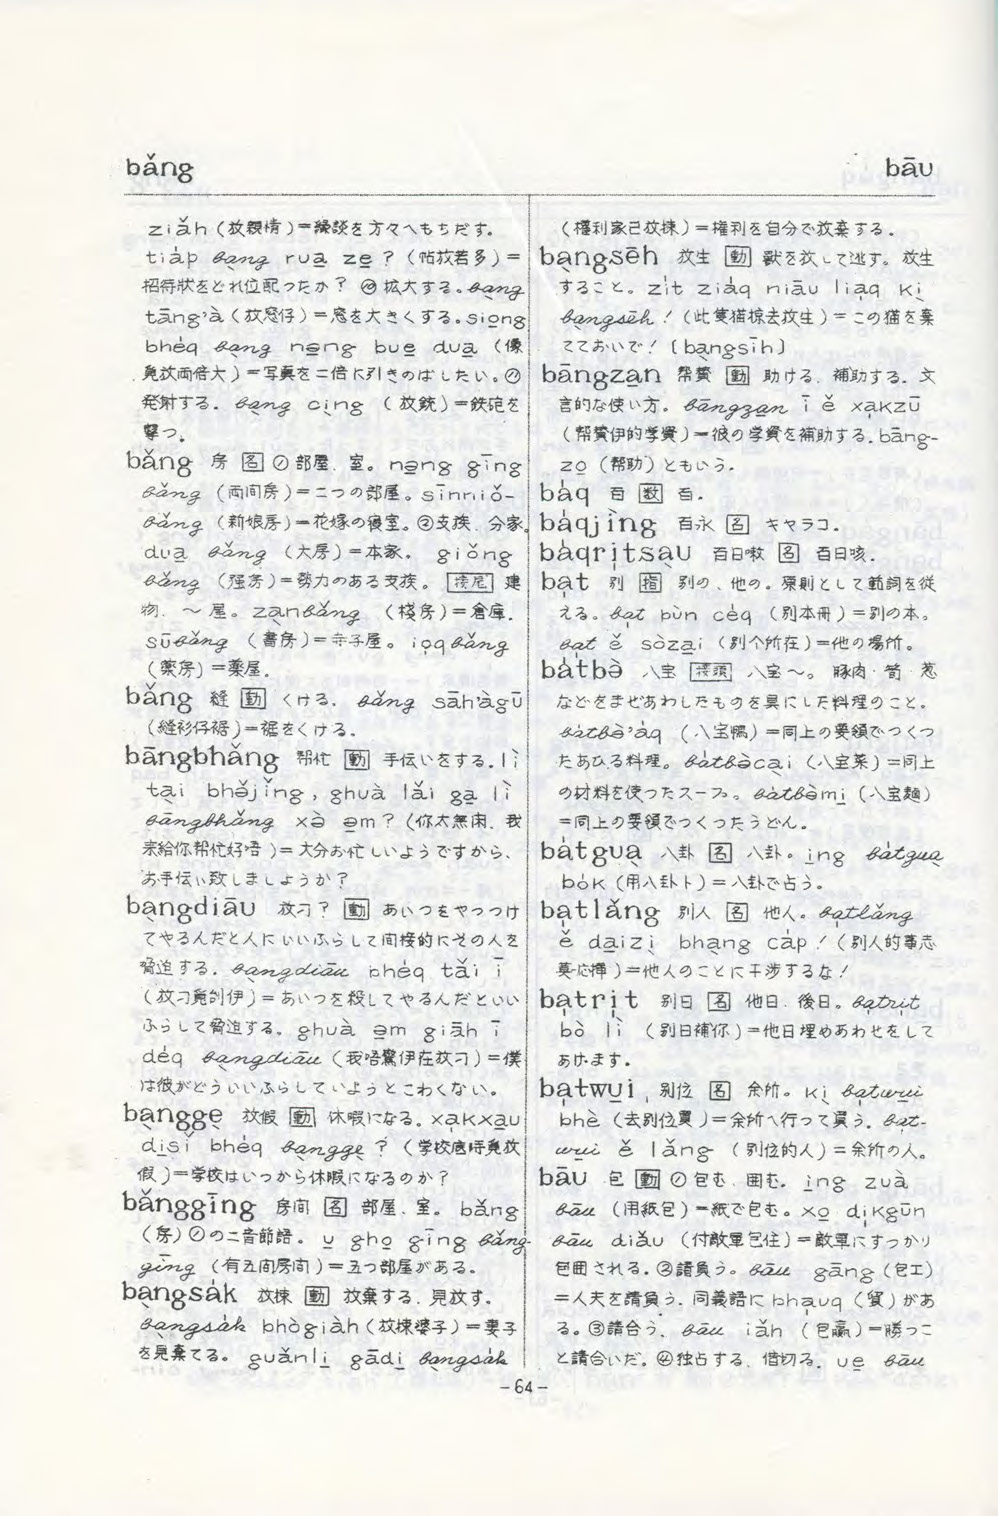 băng
bāu
ziăh (放親情)=縁談を方々へもちだす。
tiap bang rua ze ? (帖放若多)=
招待状をどれ位配ったか? 拡大する。bang
tāng'à (放窓仔)=窓を大きくする。siong
bhéq bang nəng bue dua (像
放両倍大)=写真を二倍に引きのばしたい。
発射する。bang cìng (放銃)=鉄砲を
撃つ。
băng 房 名 ①部屋、室。nəng gīng
băng (両間房)=二つの部屋。sīnniŏ-
băng (新娘房)=花嫁の寝室。②支族、分家。
dua băng (大房)=本家。giŏng
băng (强房)=勢力のある支族。接尾 建
物、~屋。zanbăng (棧房)=倉庫。
sūbăng (書房)=寺子屋。ioqbăng
(薬房)=薬屋。
băng 縫 動 くける。băng sāh'àgū
(縫衫仔裾)=裾をくける。
bāngbhăng 帮忙 動 手伝いをする。lì
tai bhəjĭng, ghuà lăi ga lì
bāngbhăng xə̀ əm? (你太無閑,我
来給你帮忙好唔)=大分お忙しいようですから、
お手伝い致しましようか?
bangdiāu 放刁? 動 あいつをやっつけ
てやるんだと人にいいふらして間接的にその人を
脅迫する。bangdiāu bhéq tăi ī
(放刁刣伊)=あいつを殺してやるんだといい
ふらして脅迫する。ghuà əm giāh ī
déq bangdiāu (我唔驚伊在放刁)=僕
は彼がどういいふらしていようとこわくない。
bangge 放假 動 休暇になる。xakxau
disĭ bhéq bangge ? (学校底時放
假)=学校はいつから休暇になるのか?
bănggīng 房間 名 部屋、室。băng
(房)①の二音節語。u gho gīng băng-
gīng (有五間房間)=五つ部屋がある。
bangsák 放捒 動 放棄する、見放す。
bangsák bhògiàh (放捒婆子)=妻子
を見棄てる。guănli gādi bangsák
(權利家己放捒)=権利を自分で放棄する。
bangsēh 放生 動 獣を放して逃す。放生
すること。zit ziáq niāu liaq ki
bangsēh ! (此隻猫掠去放生)=この猫を棄
てておいで! (bangsīh)
bāngzan 帮賛 動 助ける、補助する。文
言的な使い方。bāngzan ī ĕ xakzū
(帮賛伊的学資)=彼の学資を補助する。bāng-
zo (帮助)ともいう。
báq 百 数 百。
báqjìng 百永 名 キャラコ。
báqritsau 百日嗽 名 百日咳。
bat 别 指 別の、他の。原則として動詞を従
える。bat bùn céq (别本冊)=別の本。
bat ĕ sòzai (别个所在)=他の場所。
bátbə̀ 八宝 接頭 八宝~。豚肉・筍・葱
などをまぜあわしたものを具にした料理のこと。
bátbə̀'áq (八宝鴨)=同上の要領でつくっ
たあひる料理。bátbə̀cai (八宝菜)=同上
の材料を使ったスープ。bátbə̀mi (八宝麺)
=同上の要領でつくったうどん。
bátgua 八卦 名 八卦。ing bátgua
bók (用八卦卜)=八卦で占う。
batlăng 别人 名 他人。batlăng
ĕ daizi bhang cáp ! (别人的事志
莫応揷)=他人のことに干渉するな!
batrit 别日 名 他日、後日。batrit
bò lì (别日補你)=他日埋めあわせをして
あけます。
batwui 别位 名 余所。ki batwui
bhè (去别位買)=余所へ行って買う。bat-
wui ĕ lăng (别位的人)=余所の人。
bāu 包 動 ①包む、囲む。ing zuà
bāu (用紙包)=紙で包む。xo dikgūn
bāu diău (付敵軍包住)=敵軍にすっかり
包囲される。②請負う。bāu gāng (包工)
=人夫を請負う。同義語に bhauq (貿)があ
る。③請合う。bāu iăh (包贏)=勝つこ
と請合いだ。④独占する、借切る。ue bāu
-64-